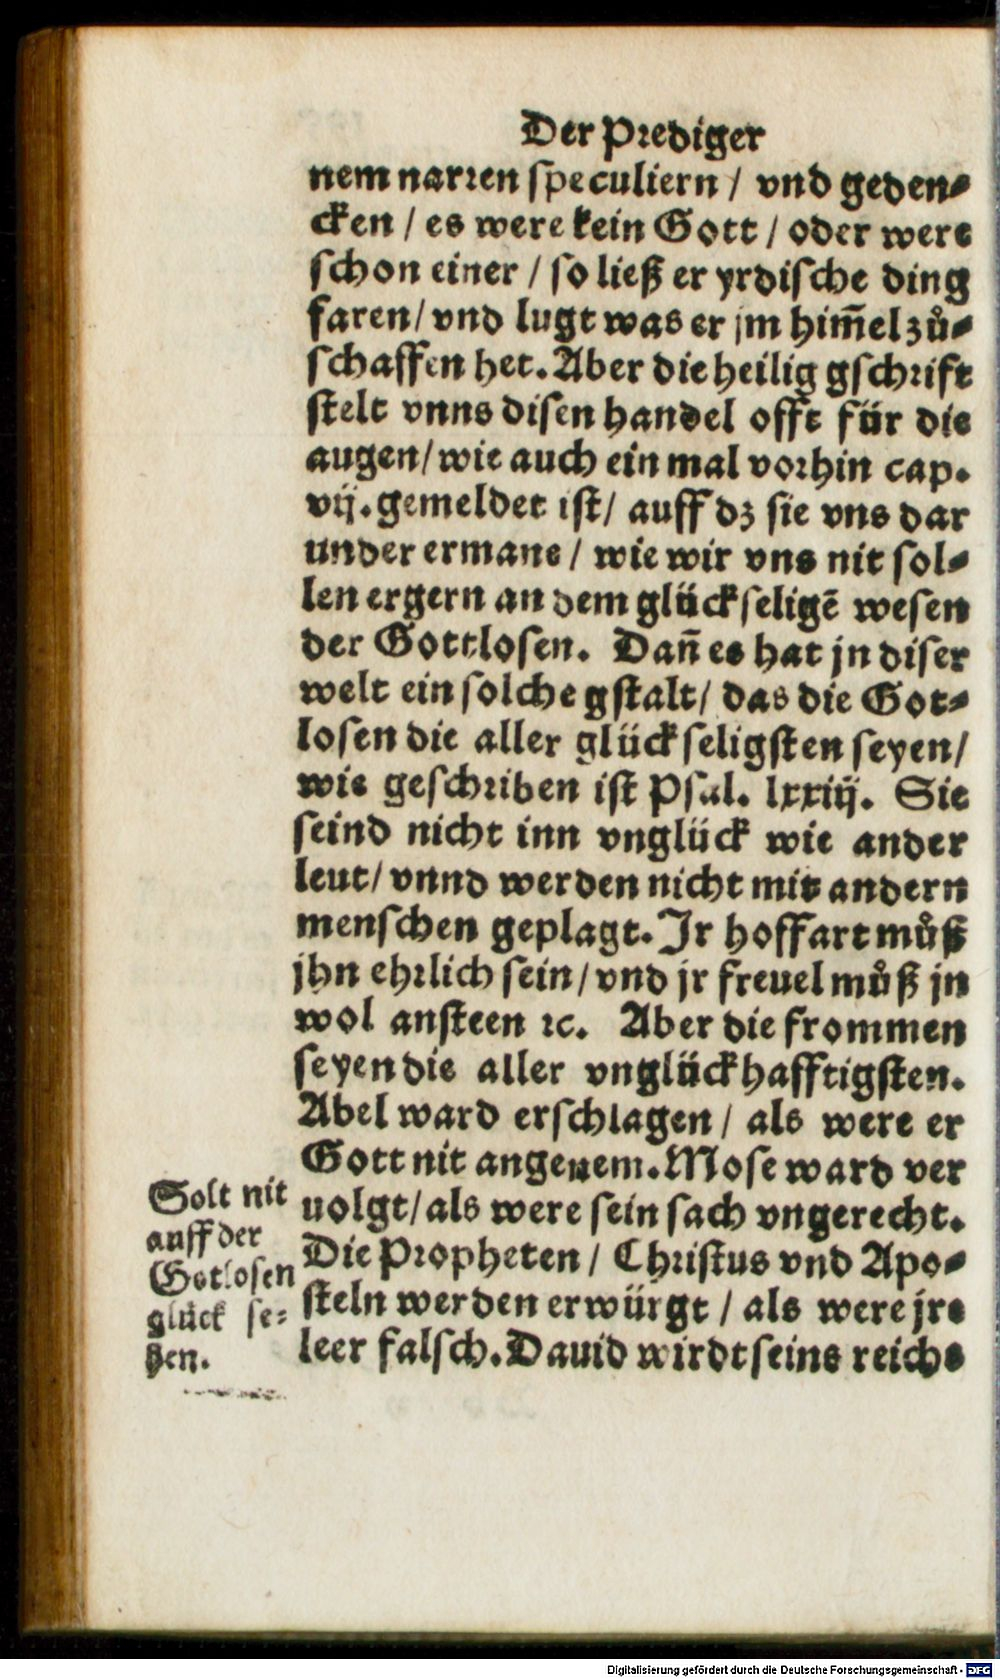 Der Prediger
nem narren speculiern / vnd geden⸗
cken / es were kein Gott / oder were
schon einer / so ließ er yrdische ding
faren / vnd lugt was er jm him̃el zů⸗
schaffen het. Aber die heilig gschrift
stelt vnns disen handel offt für die
augen / wie auch ein mal vorhin cap.
vij. gemeldet ist / auff dz sie vns dar
under ermane / wie wir vns nit sol⸗
len ergern an dem glückseligẽ wesen
der Gottlosen. Dañ es hat jn diser
welt ein solche gstalt / das die Got⸗
losen die aller glückseligsten seyen /
wie geschriben ist Psal. lxxiij. Sie
seind nicht inn vnglück wie ander
leut / vnnd werden nicht mit andern
menschen geplagt. Jr hoffart můß
jhn ehrlich sein / vnd jr freuel můß jn
wol ansteen ꝛc. Aber die frommen
seyen die aller vnglückhafftigsten.
Abel ward erschlagen / als were er
Gott nit angenem. Mose ward ver
uolgt / als were sein sach vngerecht.
Die Propheten / Christus vnd Apo⸗
steln werden erwürgt / als were jre
leer falsch. Dauid wirdt seins reichs
Solt nit
auff der
Gotlosen
glück se⸗
hen.
Digitalisierung gefördert durch die Deutsche Forschungsgemeinschaft - DFG